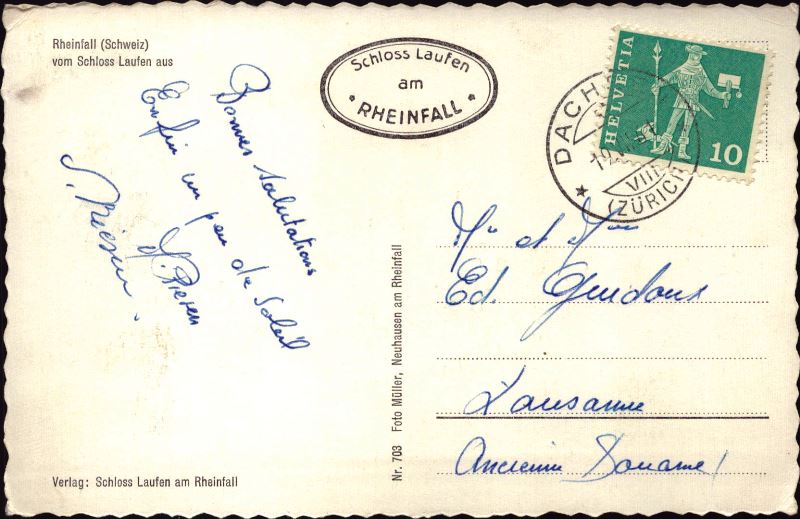 Rheinfall (Schweiz)
vom Schloss Laufen aus
Schloss Laufen
am
* RHEINFALL *
HELVETIA
10
DACHS
VIII
(ZÜRICH)
Bonnes salutations
Enfin un peu de Soleil
Mr et Mme
Ed.
Lausanne
Nr. 703 Foto Müller, Neuhausen am Rheinfall
Verlag: Schloss Laufen am Rheinfall